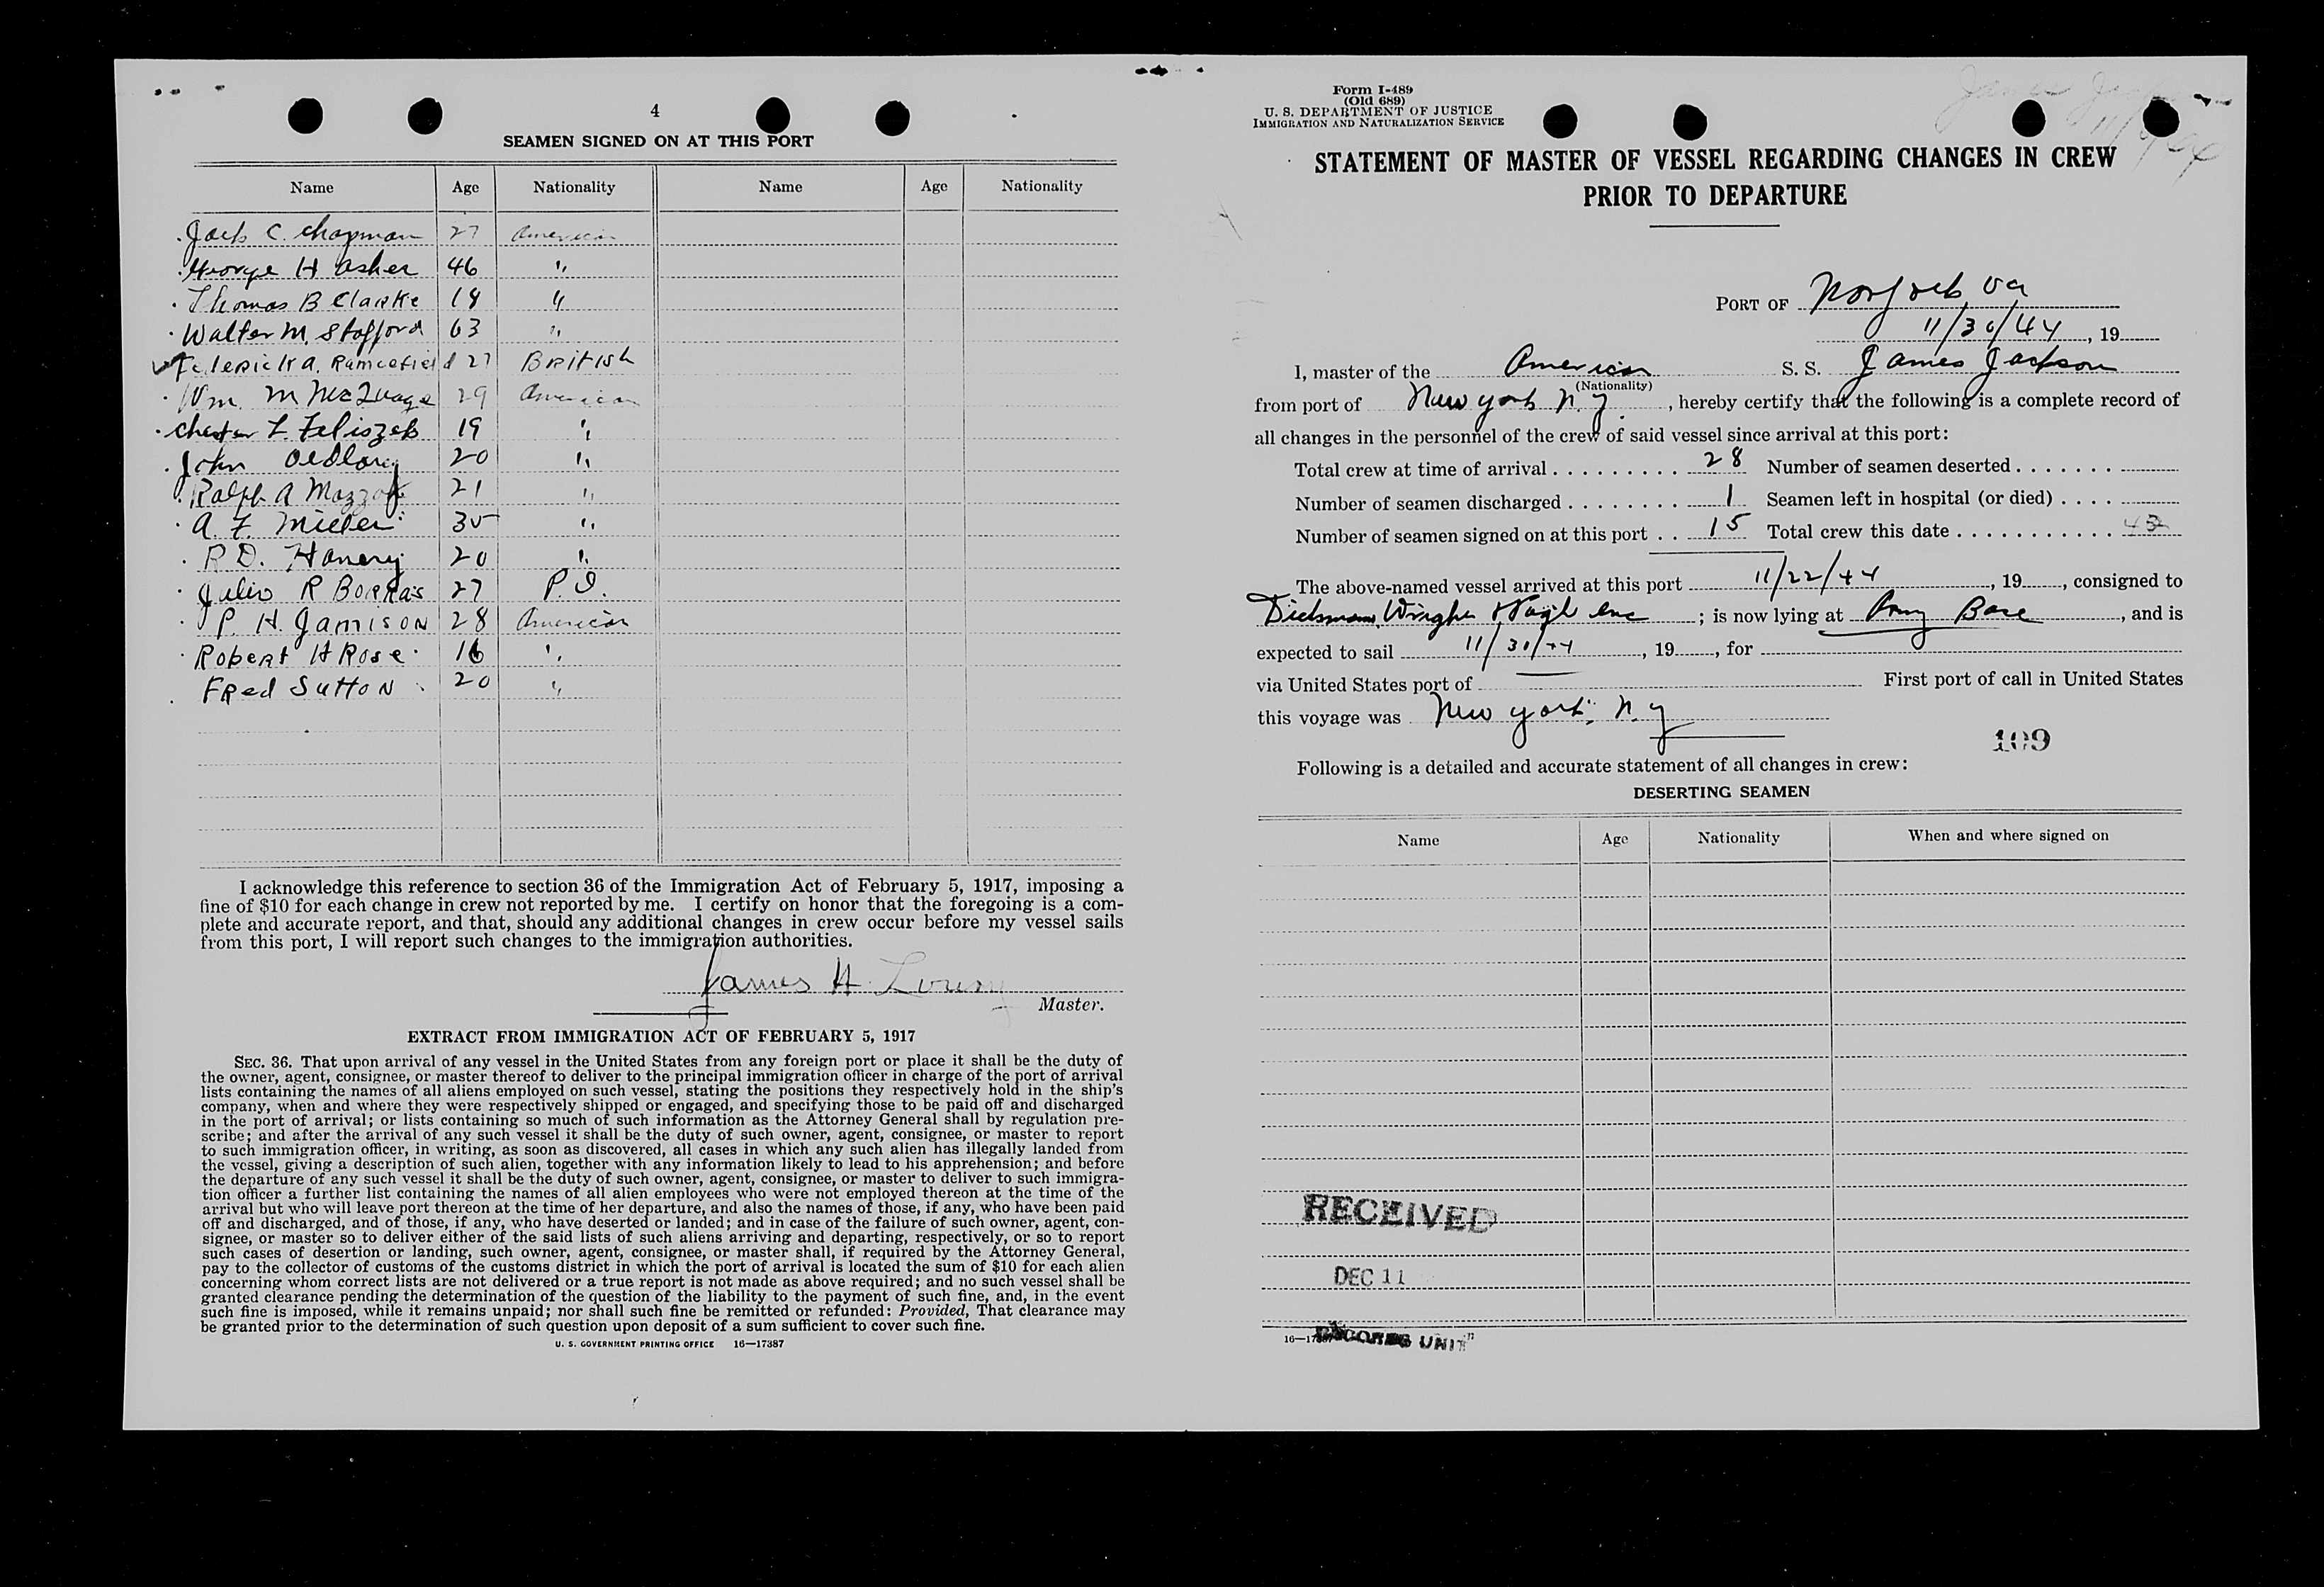 4
SEAMEN SIGNED ON AT THIS PORT
Name Age Nationality Name Age Nationality
Jack C. Chapman 27 American
George H Asher 46 "
Thomas B Clarke 18 "
Walter M. Stafford 63 "
Federick A. 27 British
Wm. M 29 American
Chester L. Feliszek 19 "
John 20 "
Ralph A 21 "
A. F. Miller 35 "
R. D. Hanery 20 "
Julio R Borras 27 P.I.
P. H. Jamison 28 American
Robert H Rose 16 "
Fred Sutton 20 "
I acknowledge this reference to section 36 of the Immigration Act of February 5, 1917, imposing a
fine of $10 for each change in crew not reported by me. I certify on honor that the foregoing is a com-
plete and accurate report, and that, should any additional changes in crew occur before my vessel sails
from this port, I will report such changes to the immigration authorities.
James H.
Master.
EXTRACT FROM IMMIGRATION ACT OF FEBRUARY 5, 1917
SEC. 36. That upon arrival of any vessel in the United States from any foreign port or place it shall be the duty of
the owner, agent, consignee, or master thereof to deliver to the principal immigration officer in charge of the port of arrival
lists containing the names of all aliens employed on such vessel, stating the positions they respectively hold in the ship's
company, when and where they were respectively shipped or engaged, and specifying those to be paid off and discharged
in the port of arrival; or lists containing so much of such information as the Attorney General shall by regulation pre-
scribe; and after the arrival of any such vessel it shall be the duty of such owner, agent, consignee, or master to report
to such immigration officer, in writing, as soon as discovered, all cases in which any such alien has illegally landed from
the vessel, giving a description of such alien, together with any information likely to lead to his apprehension; and before
the departure of any such vessel it shall be the duty of such owner, agent, consignee, or master to deliver to such immigra-
tion officer a further list containing the names of all alien employees who were not employed thereon at the time of the
arrival but who will leave port thereon at the time of her departure, and also the names of those, if any, who have been paid
off and discharged, and of those, if any, who have deserted or landed; and in case of the failure of such owner, agent, con-
signee, or master so to deliver either of the said lists of such aliens arriving and departing, respectively, or so to report
such cases of desertion or landing, such owner, agent, consignee, or master shall, if required by the Attorney General,
pay to the collector of customs of the customs district in which the port of arrival is located the sum of $10 for each alien
concerning whom correct lists are not delivered or a true report is not made as above required; and no such vessel shall be
granted clearance pending the determination of the question of the liability to the payment of such fine, and, in the event
such fine is imposed, while it remains unpaid; nor shall such fine be remitted or refunded: Provided, That clearance may
be granted prior to the determination of such question upon deposit of a sum sufficient to cover such fine.
U. S. GOVERNMENT PRINTING OFFICE 16—17387
Form I-489
(Old 689)
U. S. DEPARTMENT OF JUSTICE
IMMIGRATION AND NATURALIZATION SERVICE
STATEMENT OF MASTER OF VESSEL REGARDING CHANGES IN CREW
PRIOR TO DEPARTURE
PORT OF Norfolk Va
11/30/44, 19
I, master of the American S. S. James Jackson
(Nationality)
from port of New York N.Y., hereby certify that the following is a complete record of
all changes in the personnel of the crew of said vessel since arrival at this port:
Total crew at time of arrival 28 Number of seamen deserted
Number of seamen discharged 1 Seamen left in hospital (or died)
Number of seamen signed on at this port 15 Total crew this date 42
The above-named vessel arrived at this port 11/22/44, 19, consigned to
Dichmann, Wright & Pugh Inc; is now lying at Army Base, and is
expected to sail 11/30/44, 19, for
via United States port of First port of call in United States
this voyage was New York, N.Y
109
Following is a detailed and accurate statement of all changes in crew:
DESERTING SEAMEN
Name Age Nationality When and where signed on
RECEIVED
DEC 11
RECORDS UNIT